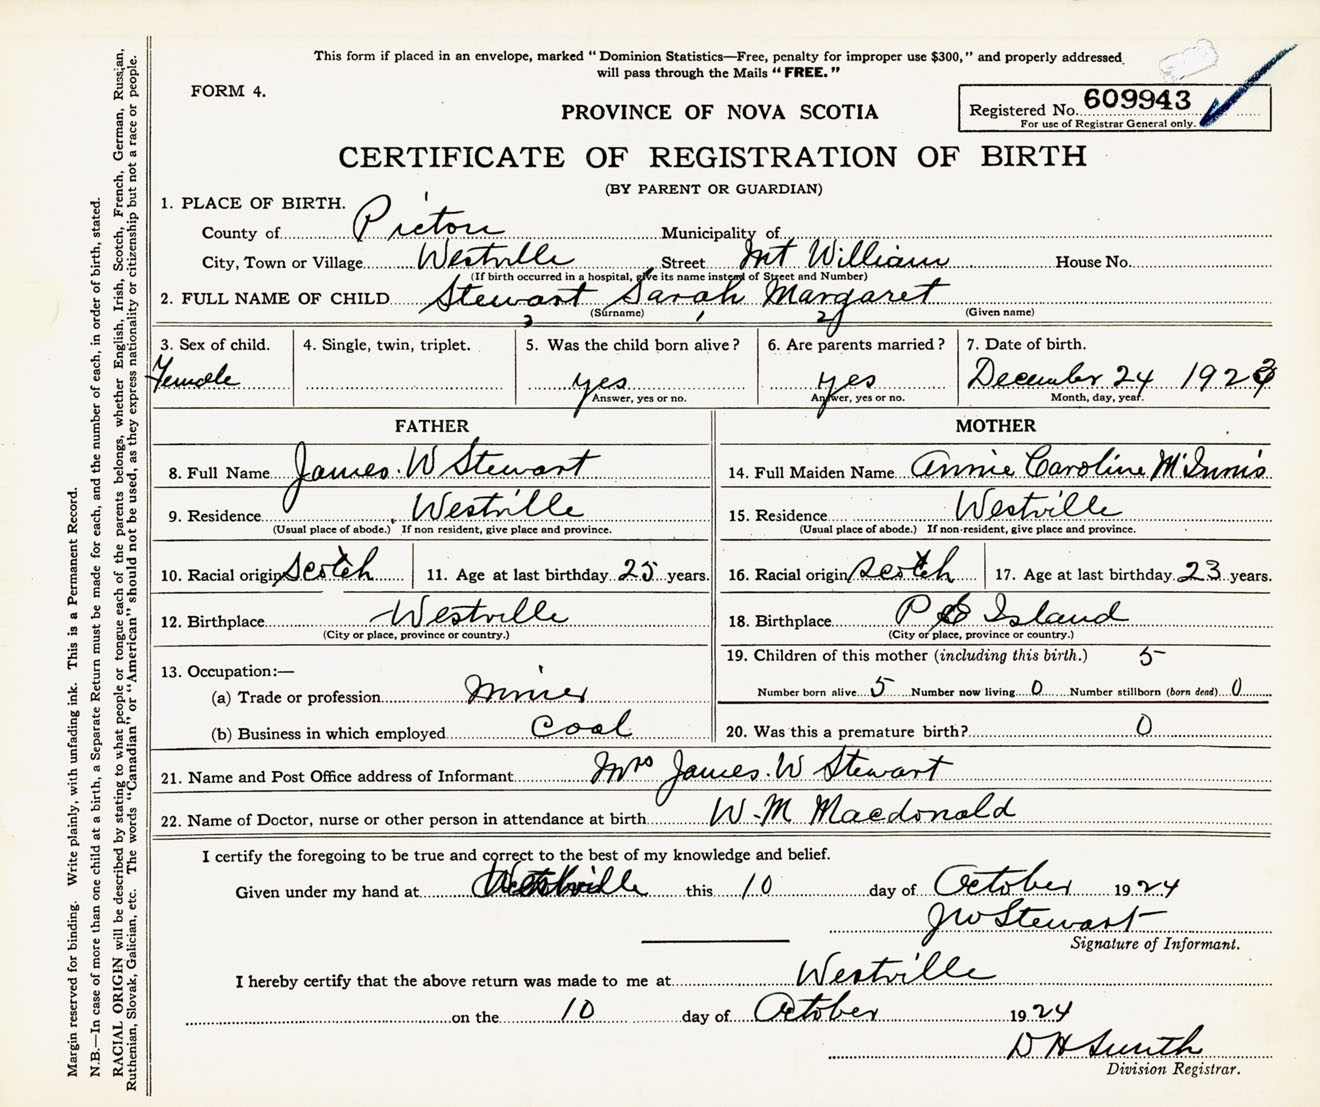 This form if placed in an envelope, marked "Dominion Statistics—Free, penalty for improper use $300," and properly addressed
will pass through the Mails "FREE."
FORM 4.
PROVINCE OF NOVA SCOTIA
Registered No. 609943
For use of Registrar General only.
CERTIFICATE OF REGISTRATION OF BIRTH
(BY PARENT OR GUARDIAN)
1. PLACE OF BIRTH.
County of Pictou Municipality of
City, Town or Village Westville Street Mt William House No.
(If birth occurred in a hospital, give its name instead of Street and Number)
2. FULL NAME OF CHILD Stewart Sarah Margaret
(Surname) (Given name)
3 1 2
3. Sex of child. 4. Single, twin, triplet. 5. Was the child born alive? 6. Are parents married? 7. Date of birth.
Female yes yes December 24 1923
Answer, yes or no. Answer, yes or no. Month, day, year.
FATHER MOTHER
8. Full Name James. W Stewart 14. Full Maiden Name Annie Caroline McInnis
9. Residence Westville 15. Residence Westville
(Usual place of abode.) If non resident, give place and province. (Usual place of abode.) If non-resident, give place and province.
10. Racial origin Scotch 11. Age at last birthday 25 years. 16. Racial origin Scotch 17. Age at last birthday 23 years.
12. Birthplace Westville 18. Birthplace P E Island
(City or place, province or country.) (City or place, province or country.)
19. Children of this mother (including this birth.) 5
13. Occupation:—
(a) Trade or profession miner Number born alive 5 Number now living 0 Number stillborn (born dead) 0
(b) Business in which employed Coal 20. Was this a premature birth? 0
21. Name and Post Office address of Informant Mrs James. W Stewart
22. Name of Doctor, nurse or other person in attendance at birth W. M Macdonald
I certify the foregoing to be true and correct to the best of my knowledge and belief.
Given under my hand at Westville this 10 day of October 1924
J W Stewart
Signature of Informant.
I hereby certify that the above return was made to me at Westville
on the 10 day of October 1924
D H Smith
Division Registrar.
Margin reserved for binding. Write plainly, with unfading ink. This is a Permanent Record.
N.B.—In case of more than one child at a birth, a Separate Return must be made for each, and the number of each, in order of birth, stated.
RACIAL ORIGIN will be described by stating to what people or tongue each of the parents belongs, whether English, Irish, Scotch, French, German, Russian,
Ruthenian, Slovak, Galician, etc. The words "Canadian" or "American" should not be used, as they express nationality or citizenship but not a race or people.